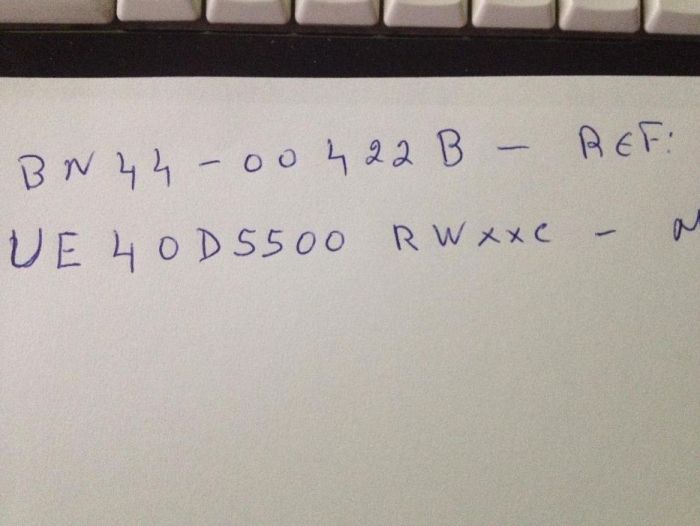 BN44-00422B - REF:
UE40D5500 RWXXC -